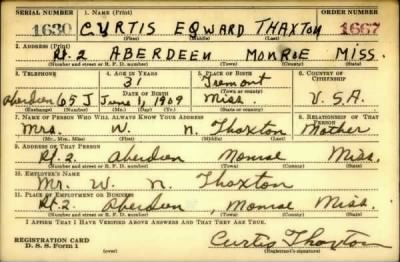 SERIAL NUMBER 1. Name (Print) ORDER NUMBER
1630 CURTIS EDWARD THAXTON 1667
(First) (Middle) (Last)
2. Address (Print)
Rt. 2 ABERDEEN MONROE MISS.
(Number and street or R. F. D. number) (Town) (County) (State)
3. Telephone 4. Age in Years 5. Place of Birth 6. Country of Citizenship
31 Tremont
Date of Birth (Town or county)
Aberdeen 65 J June 1, 1909 Miss. U.S.A.
(Exchange) (Number) (Mo.) (Day) (Yr.) (State or country)
7. Name of Person Who Will Always Know Your Address 8. Relationship of That Person
Mrs. W. N. Thaxton Mother
(Mr., Mrs., Miss) (First) (Middle) (Last)
9. Address of That Person
Rt. 2. Aberdeen Monroe Miss.
(Number and street or R. F. D. number) (Town) (County) (State)
10. Employer's Name
Mr. W. N. Thaxton
11. Place of Employment or Business
Rt. 2. Aberdeen, Monroe Miss.
(Number and street or R. F. D. number) (Town) (County) (State)
I Affirm That I Have Verified Above Answers and That They Are True.
REGISTRATION CARD
D. S. S. Form 1 Curtis Thaxton
(Registrant's signature)